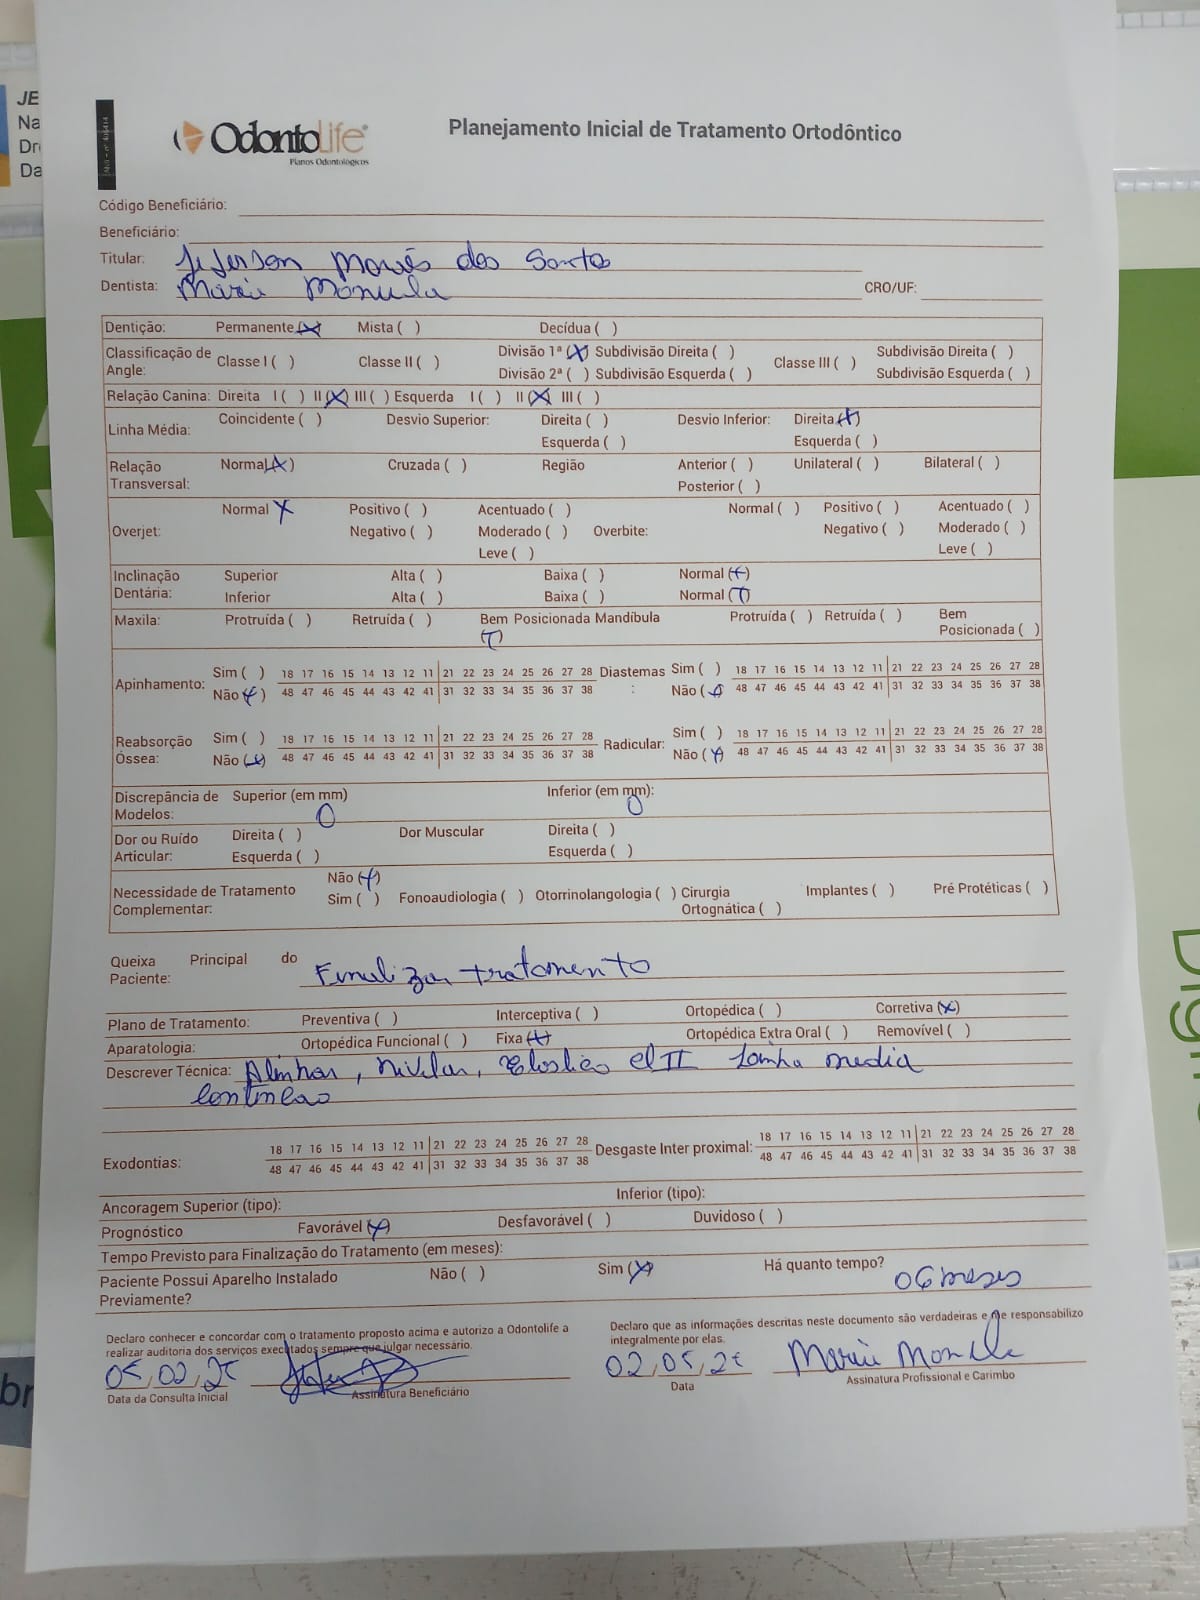 JE
Na
Dr
Da
OdontoLife
Planos Odontológicos
Planejamento Inicial de Tratamento Ortodôntico
Código Beneficiário:
Beneficiário:
Titular: Jeferson dos Santos
Dentista: CRO/UF:
Dentição: Permanente (X) Mista ( ) Decídua ( )
Classificação de Angle: Classe I ( ) Classe II ( ) Divisão 1ª (X) Subdivisão Direita ( ) Classe III ( ) Subdivisão Direita ( )
Divisão 2ª ( ) Subdivisão Esquerda ( ) Subdivisão Esquerda ( )
Relação Canina: Direita I ( ) II (X) III ( ) Esquerda I ( ) II (X) III ( )
Linha Média: Coincidente ( ) Desvio Superior: Direita ( ) Desvio Inferior: Direita (X)
Esquerda ( ) Esquerda ( )
Relação Transversal: Normal (X) Cruzada ( ) Região Anterior ( ) Unilateral ( ) Bilateral ( )
Posterior ( )
Overjet: Normal X Positivo ( ) Acentuado ( ) Overbite: Normal ( ) Positivo ( ) Acentuado ( )
Negativo ( ) Moderado ( ) Negativo ( ) Moderado ( )
Leve ( ) Leve ( )
Inclinação Dentária: Superior Alta ( ) Baixa ( ) Normal (X)
Inferior Alta ( ) Baixa ( ) Normal (X)
Maxila: Protruída ( ) Retruída ( ) Bem Posicionada (X) Mandíbula Protruída ( ) Retruída ( ) Bem Posicionada ( )
Apinhamento: Sim ( ) 18 17 16 15 14 13 12 11 21 22 23 24 25 26 27 28 Diastemas: Sim ( ) 18 17 16 15 14 13 12 11 21 22 23 24 25 26 27 28
Não (X) 48 47 46 45 44 43 42 41 31 32 33 34 35 36 37 38 Não (X) 48 47 46 45 44 43 42 41 31 32 33 34 35 36 37 38
Reabsorção Óssea: Sim ( ) 18 17 16 15 14 13 12 11 21 22 23 24 25 26 27 28 Radicular: Sim ( ) 18 17 16 15 14 13 12 11 21 22 23 24 25 26 27 28
Não (X) 48 47 46 45 44 43 42 41 31 32 33 34 35 36 37 38 Não (X) 48 47 46 45 44 43 42 41 31 32 33 34 35 36 37 38
Discrepância de Modelos: Superior (em mm) 0 Inferior (em mm): 0
Dor ou Ruído Articular: Direita ( ) Dor Muscular Direita ( )
Esquerda ( ) Esquerda ( )
Necessidade de Tratamento Complementar: Não (X)
Sim ( ) Fonoaudiologia ( ) Otorrinolangologia ( ) Cirurgia Ortognática ( ) Implantes ( ) Pré Protéticas ( )
Queixa Principal do Paciente: Finalizar tratamento
Plano de Tratamento: Preventiva ( ) Interceptiva ( ) Ortopédica ( ) Corretiva (X)
Aparatologia: Ortopédica Funcional ( ) Fixa (X) Ortopédica Extra Oral ( ) Removível ( )
Descrever Técnica: Alinhar, nivelar, Elastico cl II Linha media
Exodontias: 18 17 16 15 14 13 12 11 21 22 23 24 25 26 27 28 Desgaste Inter proximal: 18 17 16 15 14 13 12 11 21 22 23 24 25 26 27 28
48 47 46 45 44 43 42 41 31 32 33 34 35 36 37 38 48 47 46 45 44 43 42 41 31 32 33 34 35 36 37 38
Ancoragem Superior (tipo): Inferior (tipo):
Prognóstico Favorável (X) Desfavorável ( ) Duvidoso ( )
Tempo Previsto para Finalização do Tratamento (em meses):
Paciente Possui Aparelho Instalado Previamente? Não ( ) Sim (X) Há quanto tempo? 06 meses
Declaro conhecer e concordar com o tratamento proposto acima e autorizo a Odontolife a
realizar auditoria dos serviços executados sempre que julgar necessário.
Declaro que as informações descritas neste documento são verdadeiras e me responsabilizo
integralmente por elas.
Data da Consulta Inicial Assinatura Beneficiário
Data Assinatura Profissional e Carimbo
Digi
br